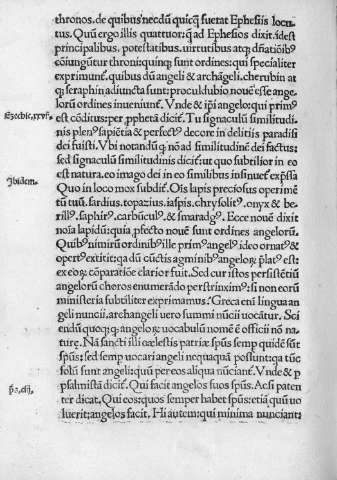 thronos. de quibus necdū quicq̄ fuerat Ephesiis locu⸗
tus. Quū ergo illis quattuor: q̄ ad Ephesios dixit. i. dest
principatibus. potestatibus. uirtutibus atq; dn̄atiōib⁹
cōiungūtur throni: quinq; sunt ordines: qui specialiter
exprimunt̄. quibus dū angeli & archāgeli. cherubin at
q; seraphin adiuncta sunt: proculdubio noue̅ esse angelo
rū ordines inueniunt̄. Vnde & ip̄i angelo: qui prim⁹
est cōditus: per ꝓphetā dicit̄. Tu signaculū similitudi
nis plen⁹ sapiētia & perfect⁹ decore in delitiis paradisi
dei fuisti. Vbi notandū q̄ nō ad similitudinē dei factus:
sed signaculū similitudinis dicit̄. ut quo subtilior in eo
est natura. eo imago dei in eo similibus insinuet̄ exp̄ssa
Quo in loco mox subdit̄. Ois lapis preciosus operimē
tū tuū. sardius. topazius. iaspis. chrysolit⁹. onyx & be
rill⁹. saphir⁹. carbūcul⁹. & smaragd⁹. Ecce nouē dixit
noīa lapidū: quia ꝓfecto nouē sunt ordines angelorū.
Quib⁹ nimirū ordinib⁹ ille prim⁹ angel⁹ ideo ornat⁹ &
opert⁹ extitit: q̄a dū cūctis agminib⁹ angelo̅ꝝ p̄lat⁹ est:
ex eoꝝ cōparatiōe clarior fuit. Sed cur istos persistētiū
angelorū choros enumerādo perstrinxim⁹: si non eorū
ministeria subtiliter exprimamus? Greca etn̄ lingua an
geli nuncii. archangeli uero summi nūcii uocātur. Sci
endū quoq; q̄ angelo̅ꝝ uocabulū nomē ē officii nō na
ture. Nā sancti illi cœlestis patriæ sp̄us semp quidē sūt
sp̄us: sed semp uocari angeli nequaquā possunt: q̄a tūc
solū sunt angeli: quū per eos aliqua nūciant̄. Vnde & p
psalmistā dicit̄. Qui facit angelos suos sp̄us. Acsi paten
ter dicat. Qui eos: quos semper habet sp̄us: etiā quū uo
luerit: angelos facit. Hi autem: qui minima nunciant:
Ezechie. xxviii.
Ibidem.
p̄s. ciij.